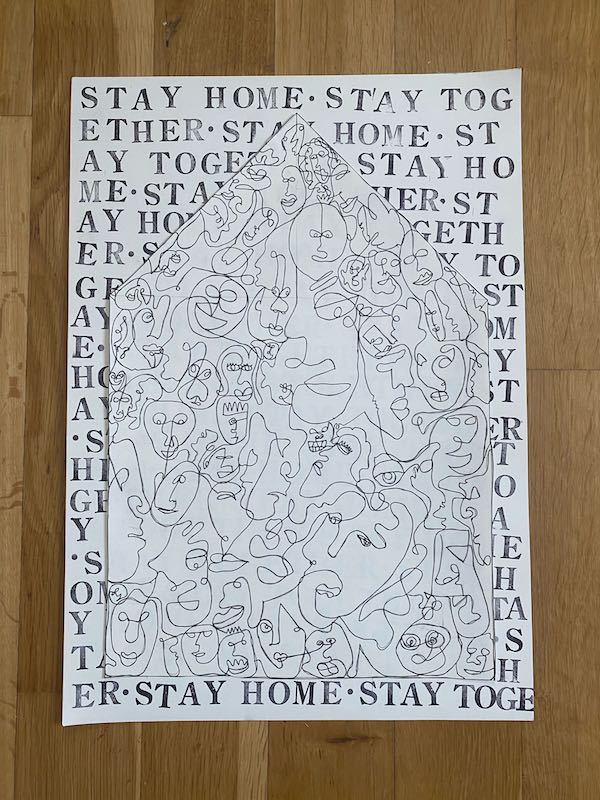 STAY HOME·STAY TOG
ETHER·STAY HOME·ST
AY TOGE STAY HO
ME·STAY HER·ST
AY HO GETH
ER·S Y TO
GE ST
AY OM
E· Y
H T
A ER
·S T
H O
G A
Y E
·S H
O TA
Y S
T H
ER·STAY HOME·STAY TOGE